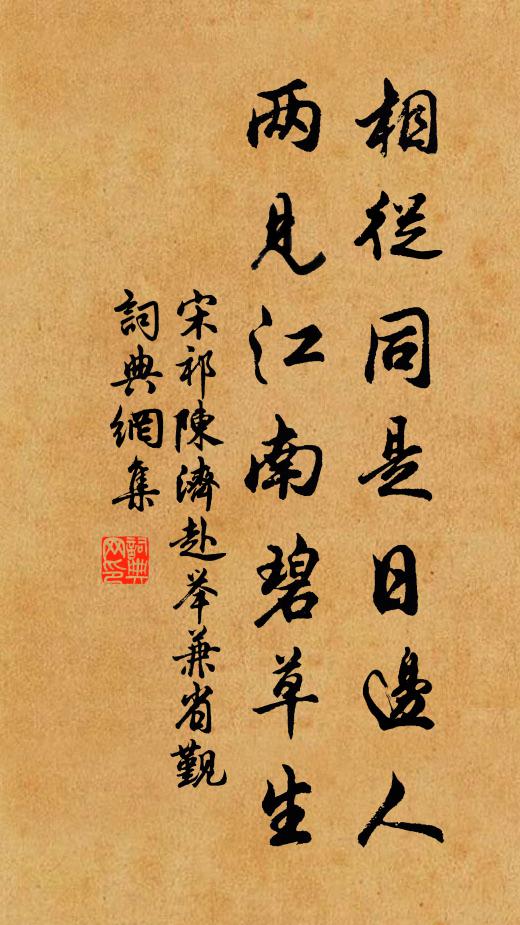 相從同是日邊人
两見江南碧草生
宋祁陳濟赴举兼省覲
詞典網集
詞典网印